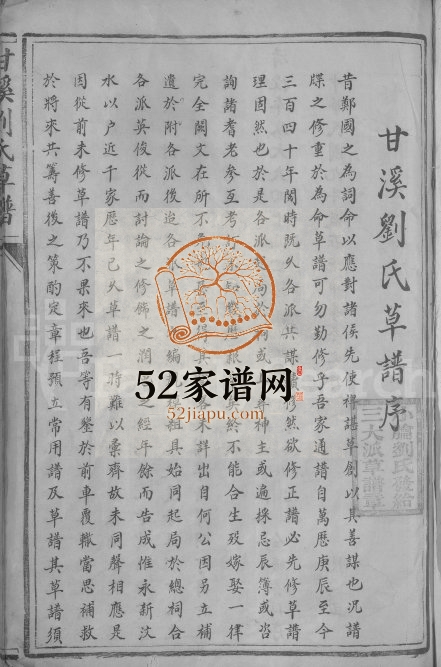 甘溪劉氏草譜序
昔鄭國之為詞命以應對諸侯先使裨諶草創以其善謀也況譜
牒之修重於為命草譜可勿勤修乎吾家通譜自萬歷庚辰至今
三百四十年閱時既久各派共謀續修然欲修正譜必先修草譜
理固然也於是各派神主或遍採忌辰簿或咨
詢諸耆老參互考終不能合生歿嫁娶一律
完全闕文在所不免未詳出自何公因另立補
遺於附各派後迨各草譜編俱具始同起局於總祠合
各派英俊從而討論之修飾之潤之經年餘而告成惟永新汶
水以户近千家歷年已久草譜一時難以彙齊故未同聲相應是
因從前未修草譜乃不果來也吾等有鑒於前車覆轍當思補救
於將來共籌善後之策酌定章程預立常用譜及草譜其草譜須
甘溪劉氏草譜
劉氏
三大派草譜章
52家谱网
52jiapu.com